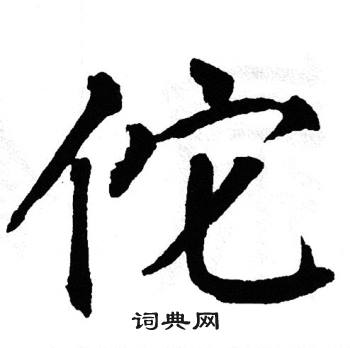 佗
词典网